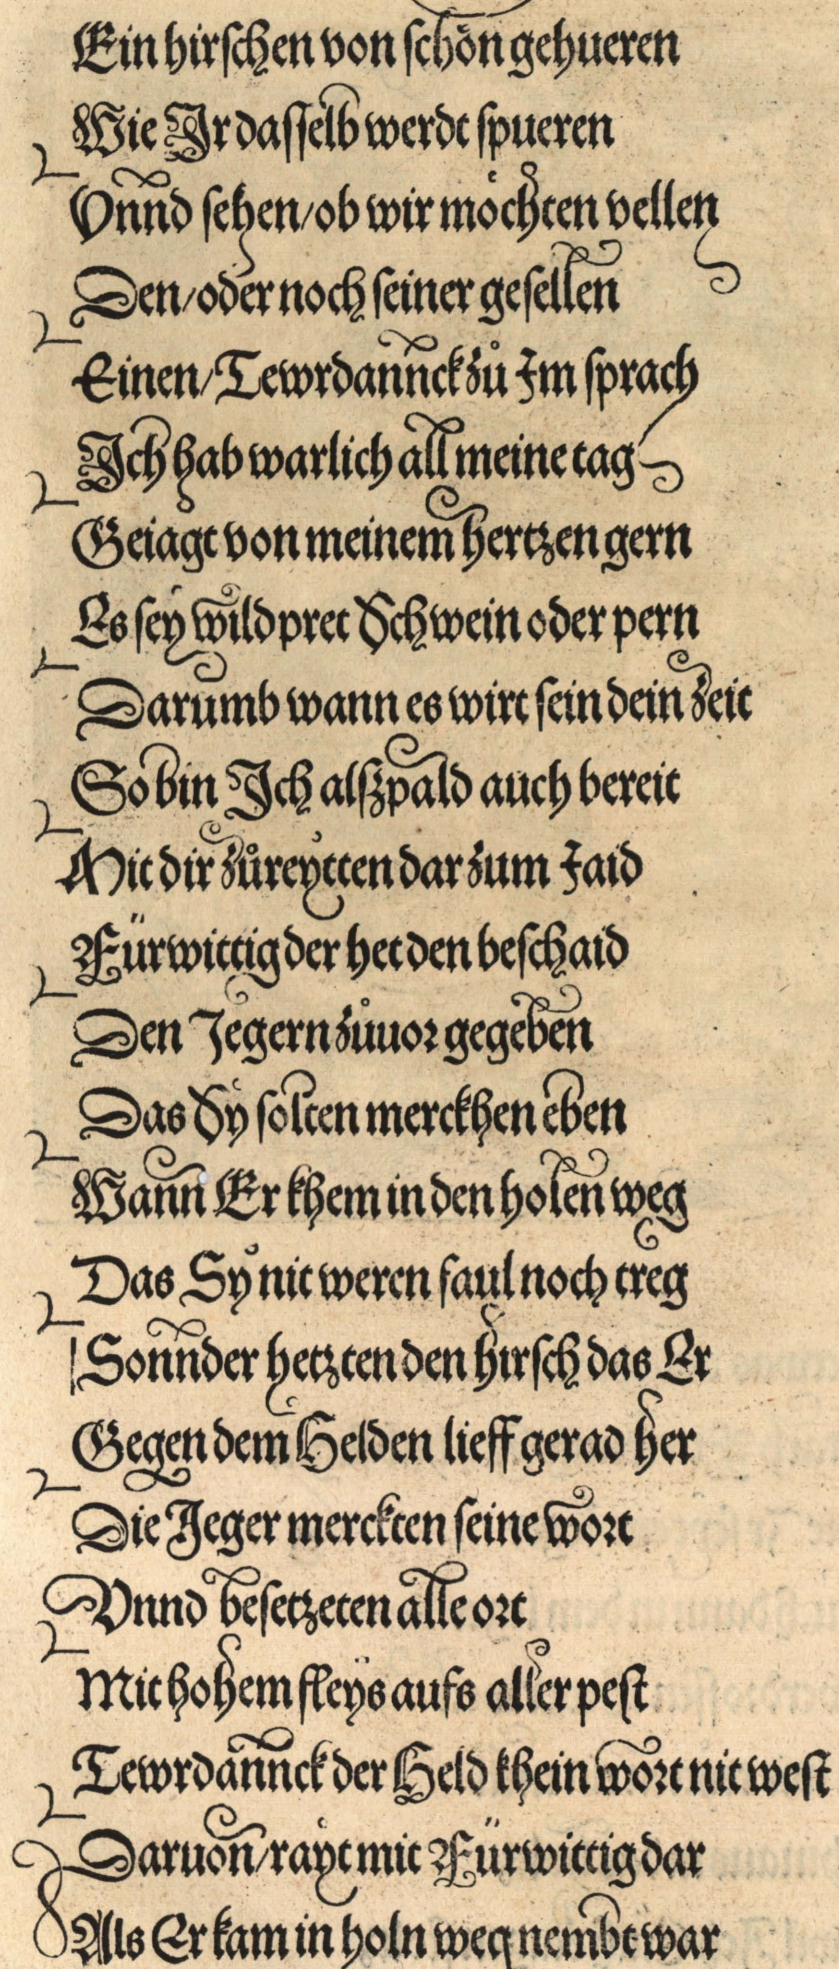 Ein hirschen von schön gehueren
Wie Ir dasselb werdt spueren
Vnnd sehen/ob wir möchten vellen
Den/oder noch seiner gesellen
Einen/Tewrdannck zů Im sprach
Ich hab warlich all meine tag
Geiagt von meinem hertzen gern
Es sey wildpret Schwein oder pern
Darumb wann es wirt sein dein zeit
So bin Ich alſzpald auch bereit
Mit dir zůreytten dar zum Jaid
Fürwittig der het den beschaid
Den Jegern zůuor gegeben
Das Sy solten merckhen eben
Wann Er khem in den holen weg
Das Sy nit weren faul noch treg
Sonnder hetzten den hirsch das Er
Gegen dem Helden lieff gerad her
Die Jeger merckten seine wort
Vnnd besetzeten alle ort
Mit hohem fleys aufs aller pest
Tewrdannck der Held khein wort nit west
Daruon/rayt mit Fürwittig dar
Als Er kam in holn weg nembt war